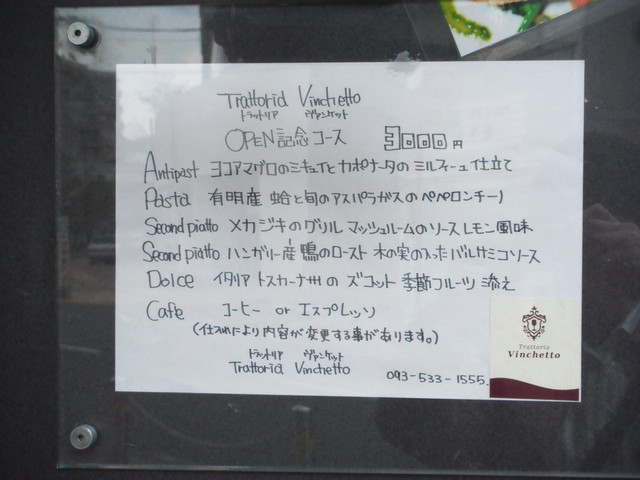 Trattoria Vinchetto
トラットリア ヴァンケット
OPEN記念コース 3000円
Antipast ヨコアマグロのミキュイとカポナータのミルフィーユ仕立て
Pasta 有明産 蛤と旬のアスパラガスのペペロンチーノ
Second piatto メカジキのグリル マッシュルームのソース レモン風味
Second piatto ハンガリー産 鴨のロースト 木の実の入ったバルサミコソース
Dolce イタリア トスカーナ州の ズコット 季節フルーツ 添え
Cafe コーヒー or エスプレッソ
(仕入れにより内容が変更する事があります。)
トラットリア ヴァンケット
Trattoria Vinchetto
093-533-1555
Trattoria
Vinchetto